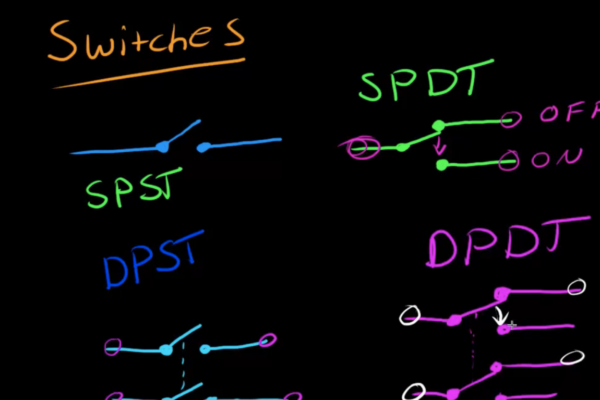 Switches
SPDT
OFF
ON
SPST
DPST
DPDT